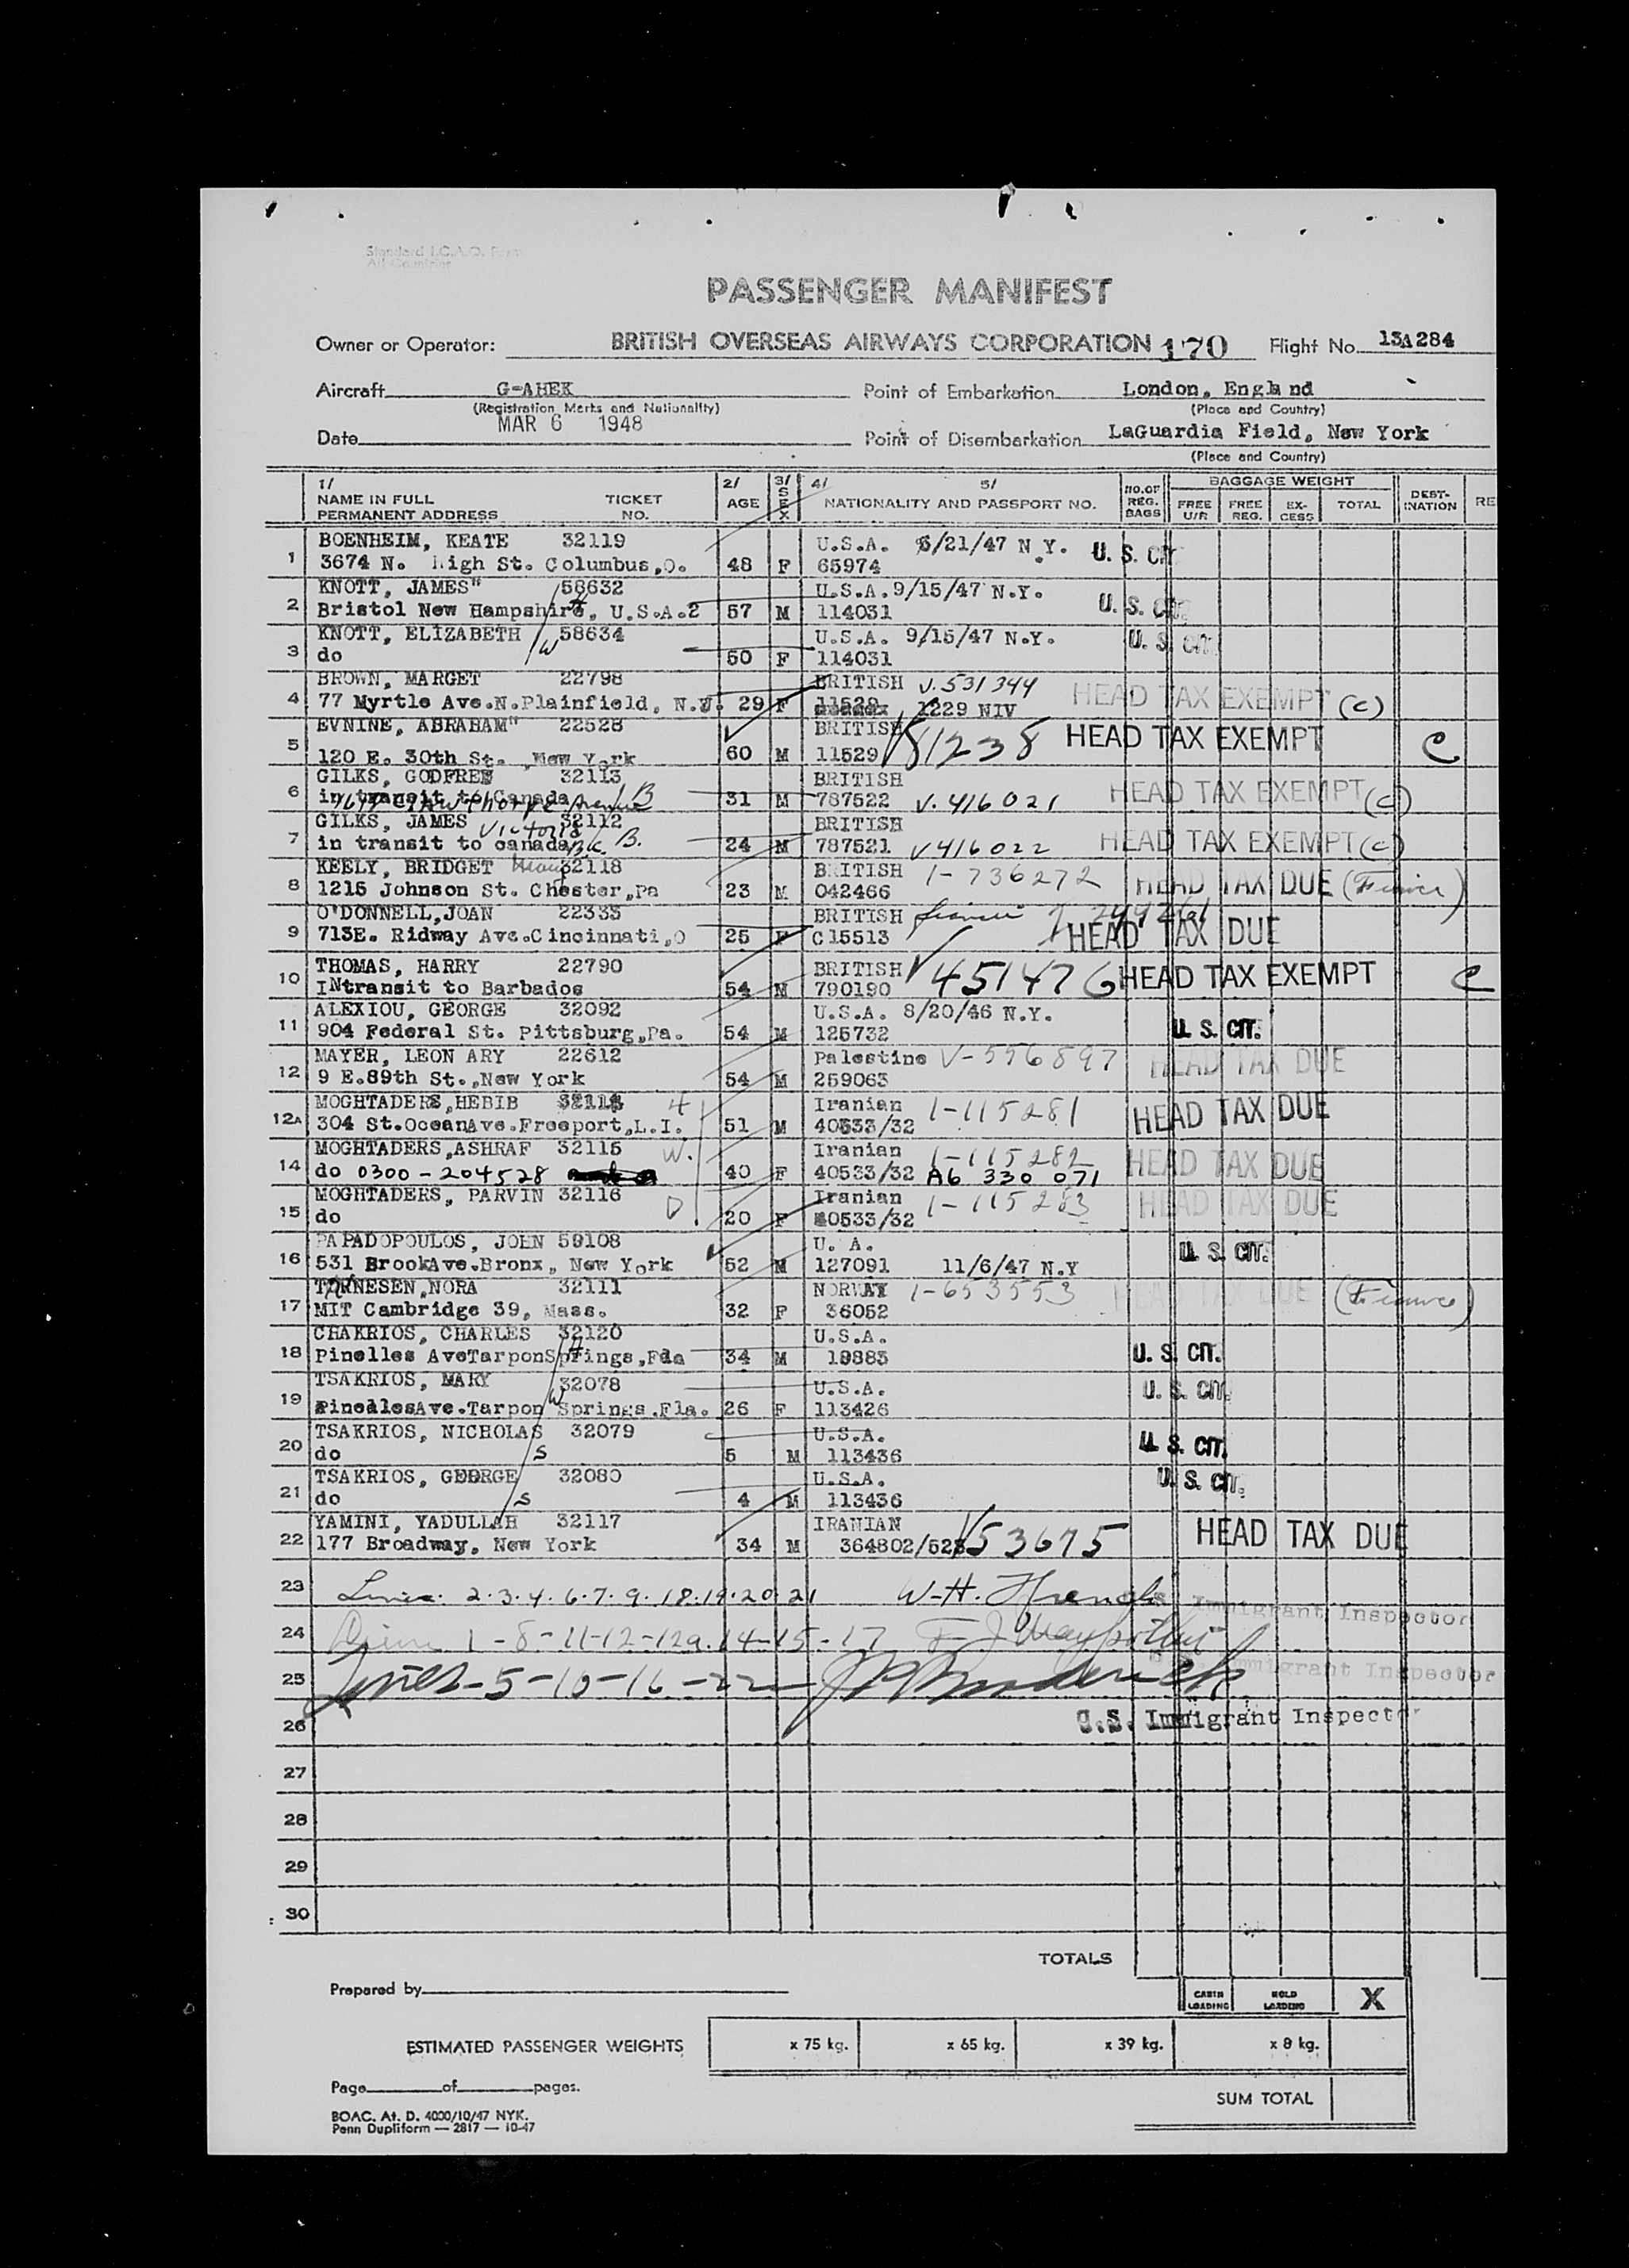 Standard I.C.A.O. Form
All Countries
PASSENGER MANIFEST
Owner or Operator: BRITISH OVERSEAS AIRWAYS CORPORATION 170 Flight No. 13A284
Aircraft G-AHEK Point of Embarkation London, England
(Registration Marks and Nationality) (Place and Country)
Date MAR 6 1948 Point of Disembarkation LaGuardia Field, New York
(Place and Country)
1/ 2/ 3/ 4/ 5/ NO. OF REG. BAGS BAGGAGE WEIGHT DEST-INATION RE
NAME IN FULL TICKET AGE SEX NATIONALITY AND PASSPORT NO. FREE U/R FREE REG. EX-CESS TOTAL
PERMANENT ADDRESS NO.
BOENHEIM, KEATE 32119 U.S.A. 6/21/47 N.Y. U. S. CIT.
1 3674 N. High St. Columbus,O. 48 F 65974
KNOTT, JAMES" 58632 U.S.A. 9/15/47 N.Y. U. S. CIT.
2 Bristol New Hampshire, U.S.A.2 57 M 114031
KNOTT, ELIZABETH 58634 U.S.A. 9/15/47 N.Y. U. S. CIT.
3 do W 50 F 114031
BROWN, MARGET 22798 BRITISH V.531344 HEAD TAX EXEMPT (C)
4 77 Myrtle Ave.N.Plainfield, N.J. 29 F 11529 1229 NIV
EVNINE, ABRAHAM" 22528 BRITISH V81238 HEAD TAX EXEMPT C
5 120 E. 30th St. ,New York 60 M 11529
GILKS, GODFREY 32113 BRITISH HEAD TAX EXEMPT (C)
6 in transit to Canada 31 M 787522 V.416021
GILKS, JAMES 32112 Victoria BRITISH HEAD TAX EXEMPT (C)
7 in transit to canada B.C. 24 M 787521 V416022
KEELY, BRIDGET 32118 BRITISH 1-736272 HEAD TAX DUE
8 1215 Johnson St. Chester,Pa 23 M 042466
O'DONNELL,JOAN 22333 BRITISH HEAD TAX DUE
9 713E. Ridway Ave.Cincinnati,O 25 F C15513
THOMAS, HARRY 22790 BRITISH V451476 HEAD TAX EXEMPT C
10 INtransit to Barbados 54 M 790190
ALEXIOU, GEORGE 32092 U.S.A. 8/20/46 N.Y. U. S. CIT.
11 904 Federal St. Pittsburg,Pa. 54 M 125732
MAYER, LEON ARY 22612 Palestine V-556897 HEAD TAX DUE
12 9 E.89th St.,New York 54 M 259063
MOGHTADERS,HEBIB 32114 H Iranian 1-115281 HEAD TAX DUE
12A 304 St.OceanAve.Freeport,L.I. 51 M 40533/32
MOGHTADERS,ASHRAF 32115 W. Iranian 1-115282 HEAD TAX DUE
14 do 0300-204528 40 F 40533/32 A6 330 071
MOGHTADERS, PARVIN 32116 D Iranian 1-115283 HEAD TAX DUE
15 do 20 F 40533/32
PAPADOPOULOS, JOHN 59108 U. A. U. S. CIT.
16 531 BrookAve.Bronx, New York 52 M 127091 11/6/47 N.Y
TORNESEN,NORA 32111 NORWAY 1-653553 HEAD TAX DUE
17 MIT Cambridge 39, Mass. 32 F 36052
CHAKRIOS, CHARLES 32120 U.S.A.
18 Pinelles AveTarponSprings,Fda H 34 M 19883 U. S. CIT.
TSAKRIOS, MARY 32078 U.S.A. U. S. CIT.
19 PinellesAve.Tarpon Springs.Fla. W 26 F 113426
TSAKRIOS, NICHOLAS 32079 U.S.A. U. S. CIT.
20 do S 5 M 113436
TSAKRIOS, GEORGE 32080 U.S.A. U. S. CIT.
21 do S 4 M 113436
YAMINI, YADULLAH 32117 IRANIAN V53675 HEAD TAX DUE
22 177 Broadway, New York 34 M 364802/523
23 Lines 2.3.4.6.7.9.18.19.20 21 W-H. French Immigrant Inspector
24 Lines 1-8-11-12-12a.14-15-17 Immigrant Inspector
25 Lines-5-10-16-22
26 U.S. Immigrant Inspector
27
28
29
30
TOTALS
Prepared by CABIN LOADING HOLD LOADING X
ESTIMATED PASSENGER WEIGHTS x 75 kg. x 65 kg. x 39 kg. x 8 kg.
Page of pages.
SUM TOTAL
BOAC. At. D. 4000/10/47 NYK.
Penn Dupliform — 2817 — 10-47